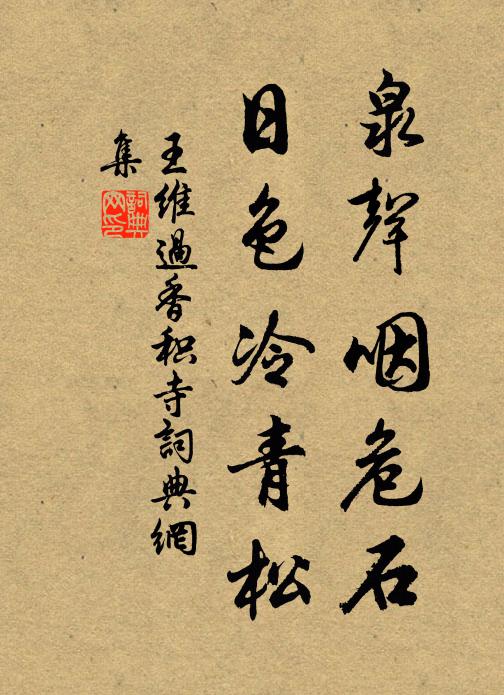 泉聲咽危石
日色冷青松
王維過香积寺詞典網
集
詞典网印